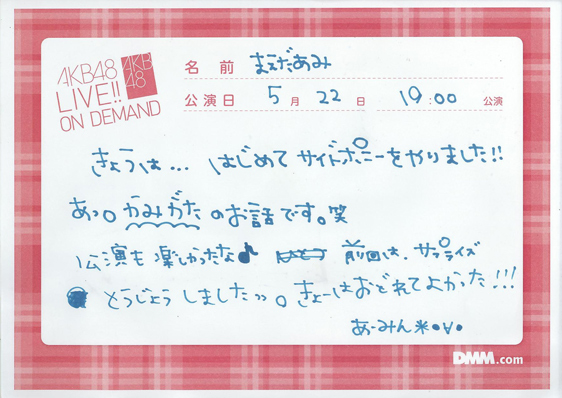 AKB48
LIVE!!
ON DEMAND
AKB
48
名前 まえだあみ
公演日 5月22日 19:00 公演
きょうは… はじめて サイドポニーをやりました!!
あっ。かみがた のお話です。笑
公演も楽しかったな♪ 前回は、サプライズ
とうじょう しましたっっ。きょーはおどれてよかった!!!
あーみん*•V•
DMM.com